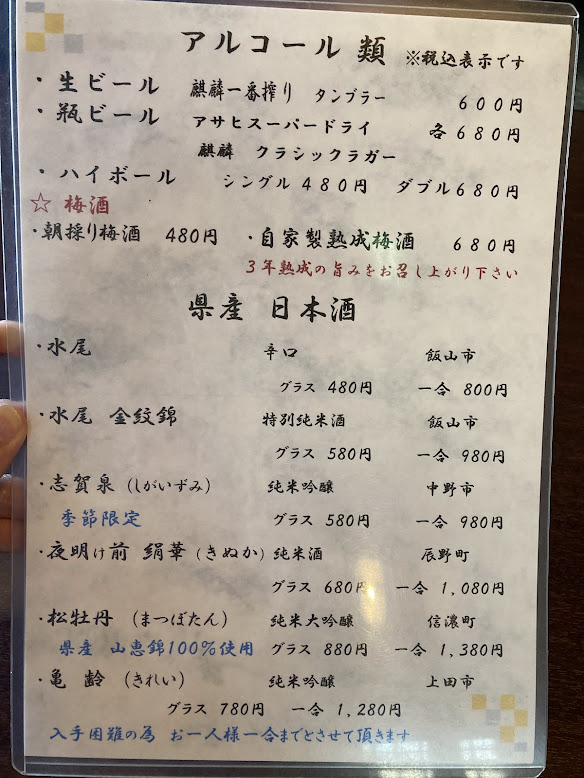 アルコール 類 ※税込表示です
・生ビール 麒麟一番搾り タンブラー 600円
・瓶ビール アサヒスーパードライ 各680円
麒麟 クラシックラガー
・ハイボール シングル 480円 ダブル680円
☆ 梅酒
・朝採り梅酒 480円 ・自家製熟成梅酒 680円
3年熟成の旨みをお召し上がり下さい
県産 日本酒
・水尾 辛口 飯山市
グラス 480円 一合 800円
・水尾 金紋錦 特別純米酒 飯山市
グラス 580円 一合 980円
・志賀泉 (しがいずみ) 純米吟醸 中野市
季節限定 グラス 580円 一合 980円
・夜明け前 絹華 (きぬか) 純米酒 辰野町
グラス 680円 一合 1,080円
・松牡丹 (まつぼたん) 純米大吟醸 信濃町
県産 山恵錦100%使用 グラス 880円 一合 1,380円
・亀 齢 (きれい) 純米吟醸 上田市
グラス 780円 一合 1,280円
入手困難の為 お一人様一合までとさせて頂きます